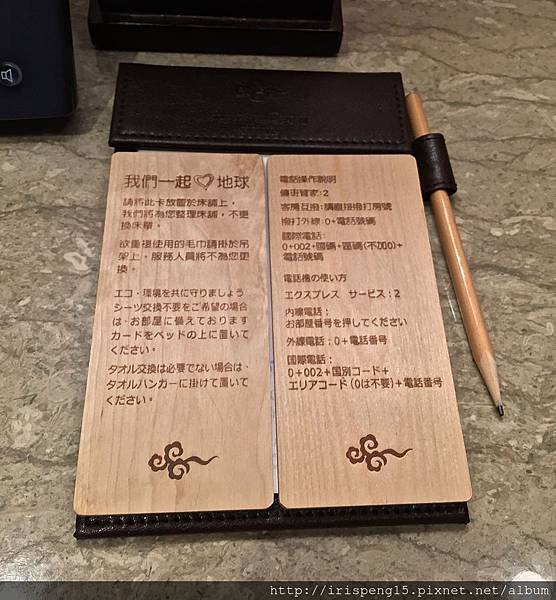 我們一起♡地球
請將此卡放置於床舖上，
我們將為您整理床舖，不更
換床單。
欲重複使用的毛巾請掛於吊
架上，服務人員將不為您更
換。
エコ・環境を共に守りましょう
シーツ交換不要をご希望の場合
は、お部屋に備えております
カードをベッドの上に置いて
ください。
タオル交換は必要でない場合は、
タオルハンガーに掛けて置いて
ください。
電話操作說明
備街管家:2
客房互撥:請直接撥打房號
撥打外線:0+電話號碼
國際電話:
0+002+國碼+區碼(不加0)+
電話號碼
電話機の使い方
エクスプレス サービス：2
内線電話：
お部屋番号を押してください
外線電話：0＋電話番号
国際電話：
0＋002＋国別コード＋
エリアコード（0は不要）＋電話番号
http://irispeng15.pixnet.net/album